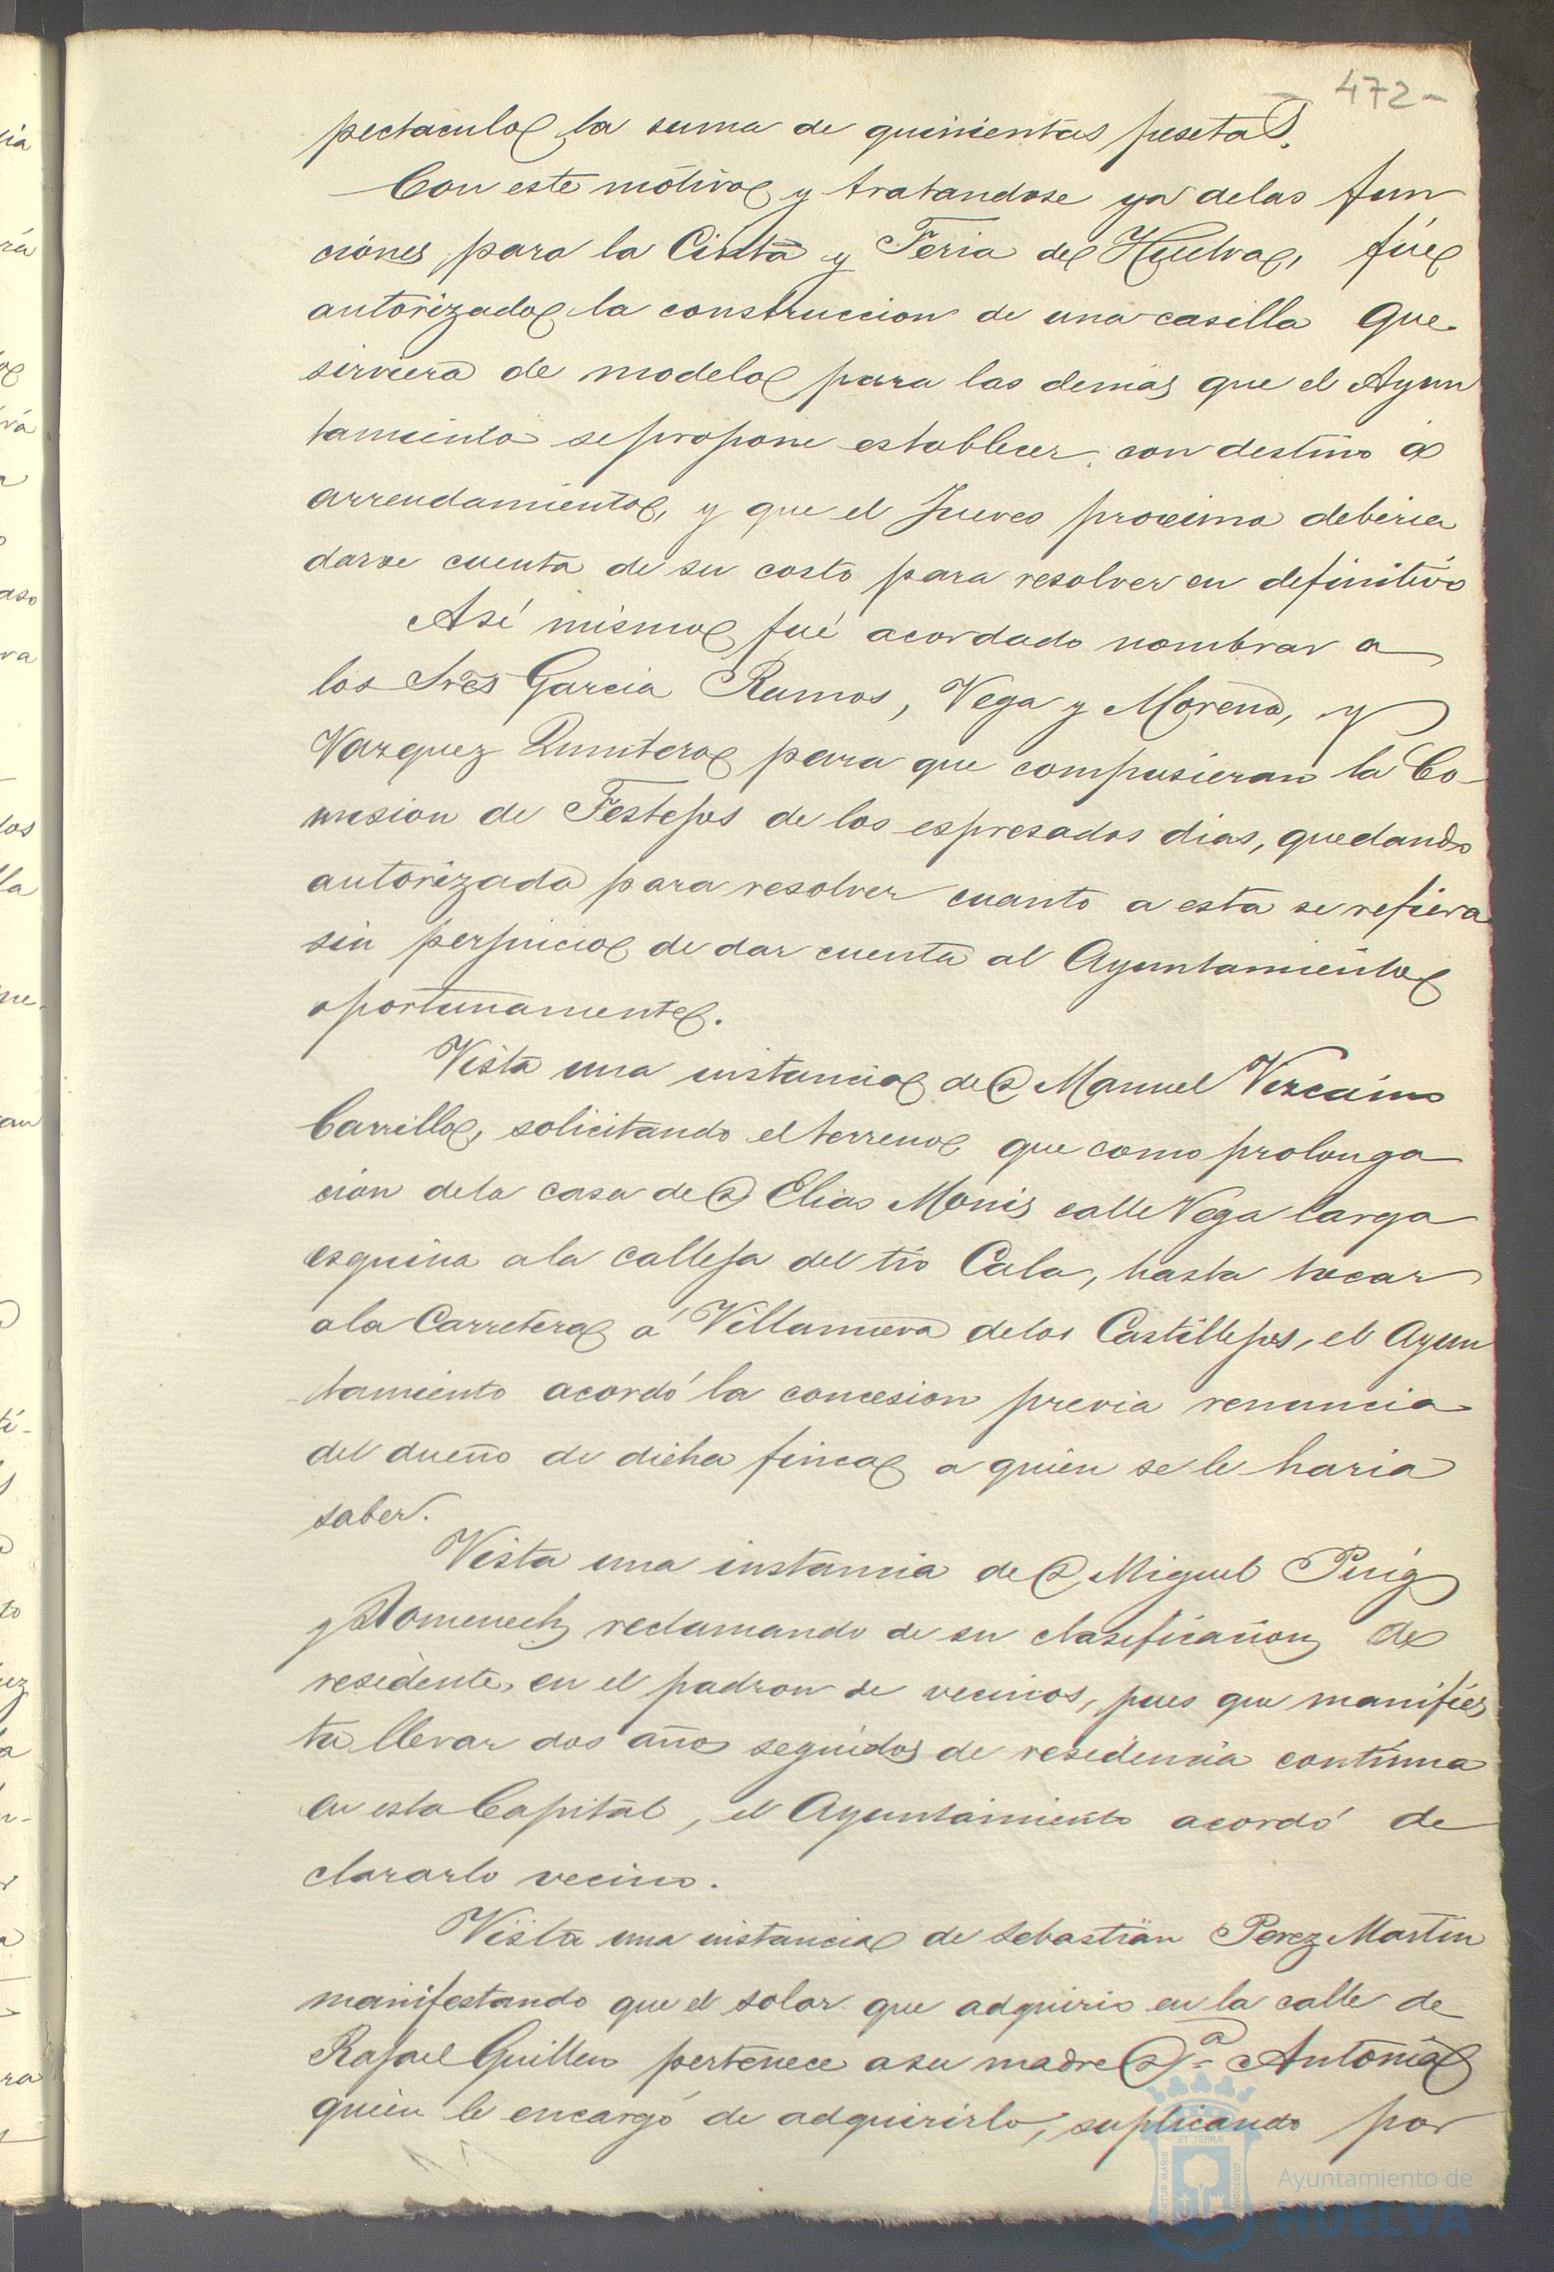 472-
pectaculo la suma de quinientas pesetas.
Con este motivo y tratandose ya de las fun
ciones para la Cinta y Feria de Huelva, fue
autorizado la construccion de una casilla que
sirviera de modelo para las demas que el Ayun
tamiento se propone establecer con destino á
arrendamiento, y que el Jueves proximo deberia
darse cuenta de su costo para resolver en definitivo
Así mismo fué acordado nombrar a
los Sres Garcia Ramos, Vega y Moreno, y
Vazquez Quintero para que compusieran la Co-
mision de Festejos de los espresados dias, quedando
autorizada para resolver cuanto a esta se refiera
sin perjuicio de dar cuenta al Ayuntamiento
oportunamente.
Vista una instancia de D Manuel Vizcaino
Carrillo, solicitando el terreno que como prolonga
cion de la casa de D Elias Monis calle Vega larga
esquina a la calleja del tio Cala, hasta tocar
a la Carretera á Villanueva de los Castillejos, el Ayun
tamiento acordó la concesion previa renuncia
del dueño de dicha finca a quien se le haria
saber.
Vista una instancia de D Miguel Puig
y Domenech reclamando de su clasificacion de
residente, en el padron de vecinos, pues que manifies
ta llevar dos años seguidos de residencia continua
en esta Capital, el Ayuntamiento acordó de
clararlo vecino.
Vista una instancia de Sebastian Perez Martin
manifestando que el solar que adquirio en la calle de
Rafael Guillen pertenece a su madre Dª Antonia
quien le encargó de adquirirlo, suplicando por
Ayuntamiento de
HUELVA